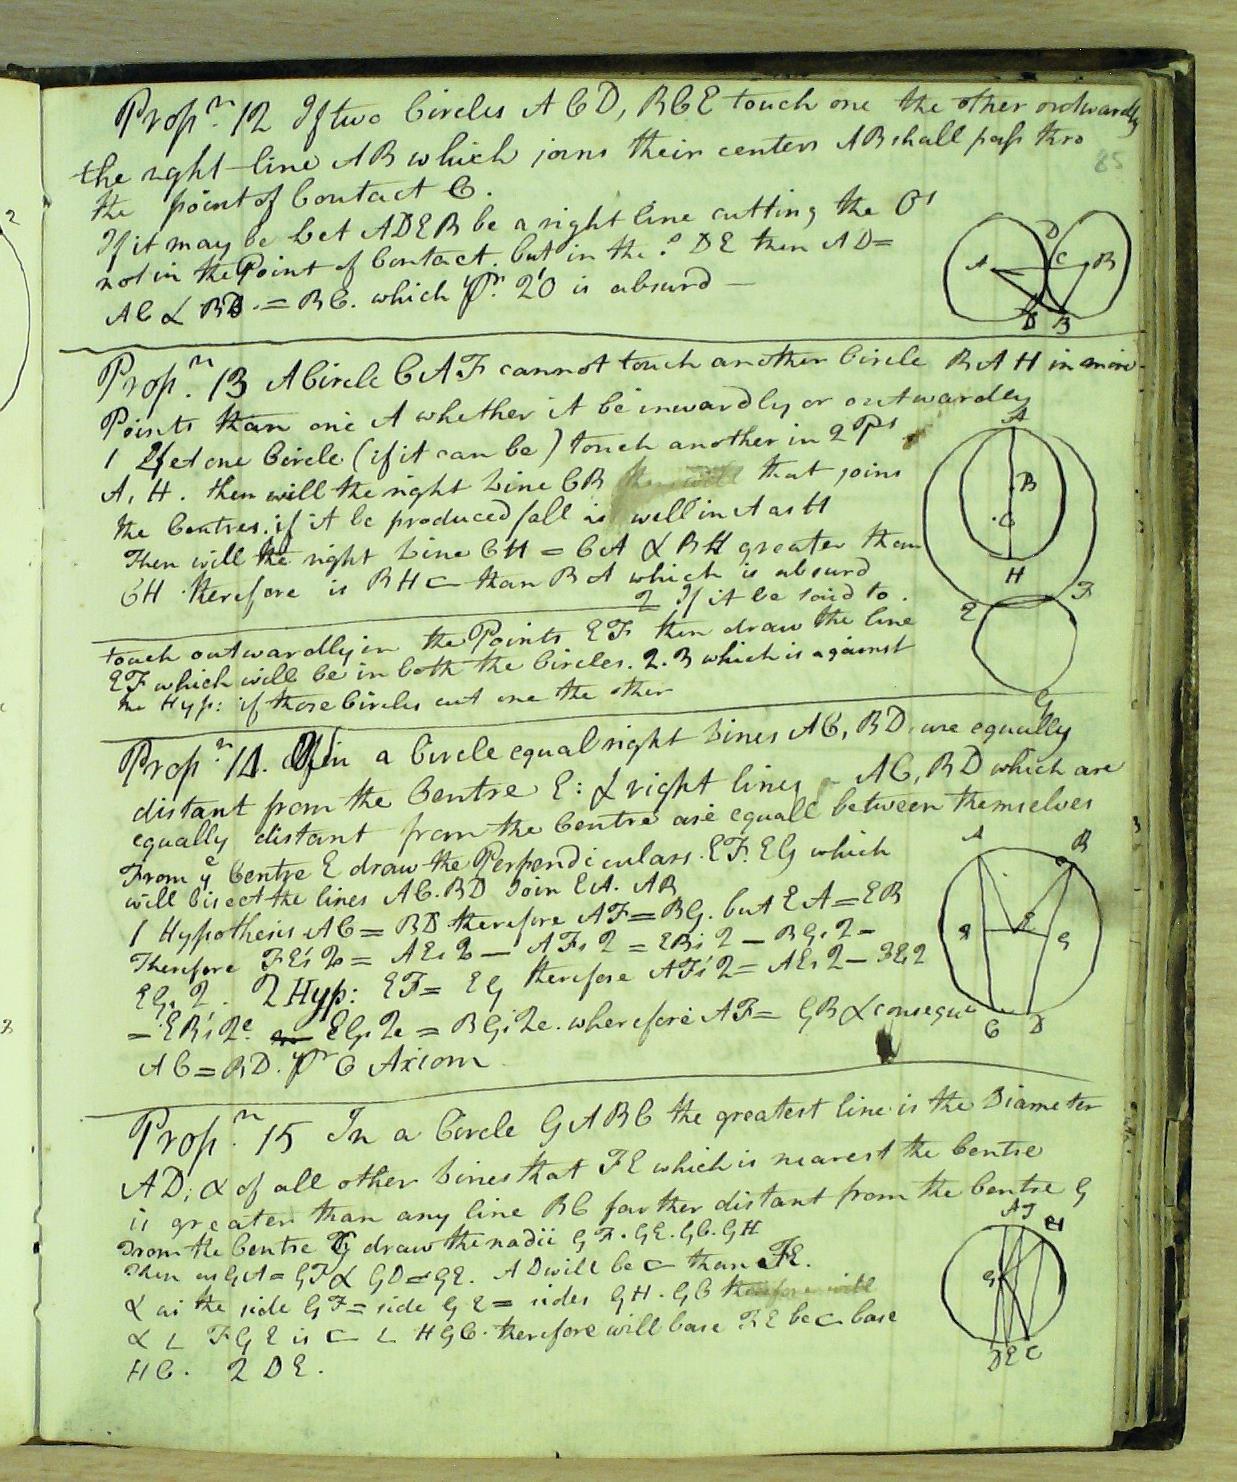 Propn. 12 If two Circles ACD, BCE touch one the other outwardly
the right line AB which joins their centers AB shall pass thro
85
the point of Contact C.
If it may be Let ADEB be a right line cutting the Os
not in the Point of Contact. but in the Ps DE then AD=
AC & BD = BC. which pr. 20 is absurd
D
A C B
D B
Propn. 13 A Circle CAF cannot touch another Circle BAH in more
Points than one A whether it be inwardly or outwardly
1 Let one Circle (if it can be) touch another in 2 Ps
A, H. then will the right Line CB that joins
the Centres, if it be produced fall as well in A as H
Then will the right Line CH = CA & BH greater than
CH therefore is BH ⊏ than BA which is absurd
2 If it be said to
touch outwardly in the Points EF then draw the line
EF which will be in both the Circles. 2.3 which is against
the Hyp: if those Circles cut one the other
A
B
C
H
E F
G
Propn. 14. In a Circle equal right Lines AC, BD are equally
distant from the Centre E: & right lines AC, BD which are
equally distant from the Centre are equall between themselves
From ye Centre E draw the Perpendiculars. EF. EG which
will bisect the lines AC. BD Join EA. AB
1 Hypothesis AC = BD therefore AF = BG. but EA = EB
Therefore FEs 2 = AEs 2 — AFs 2 = EBs 2 — BGs 2 =
EGs 2. 2 Hyp: EF = EG therefore AFs 2 = AEs 2 —
= EBs 2e. EGs 2e = BGs 2e. wherefore AF = GB & conseque
AC = BD. pr 6 Axiom
A B
E G
C D
Propn. 15 In a Circle GABC the greatest line is the Diameter
AD; & of all other Lines that FE which is nearest the Centre
is greater than any line BC farther distant from the Centre G
From the Centre G draw the radii GF. GE. GC. GH
Then as GA = GF & GD = GE. AD will be ⊏ than FE.
& as the side GF = side GE = sides GH. GC therefore will
& ∠ FGE is ⊏ ∠ HGC. therefore will base FE be ⊏ base
HC. 2 DE.
A F H
G
D E C